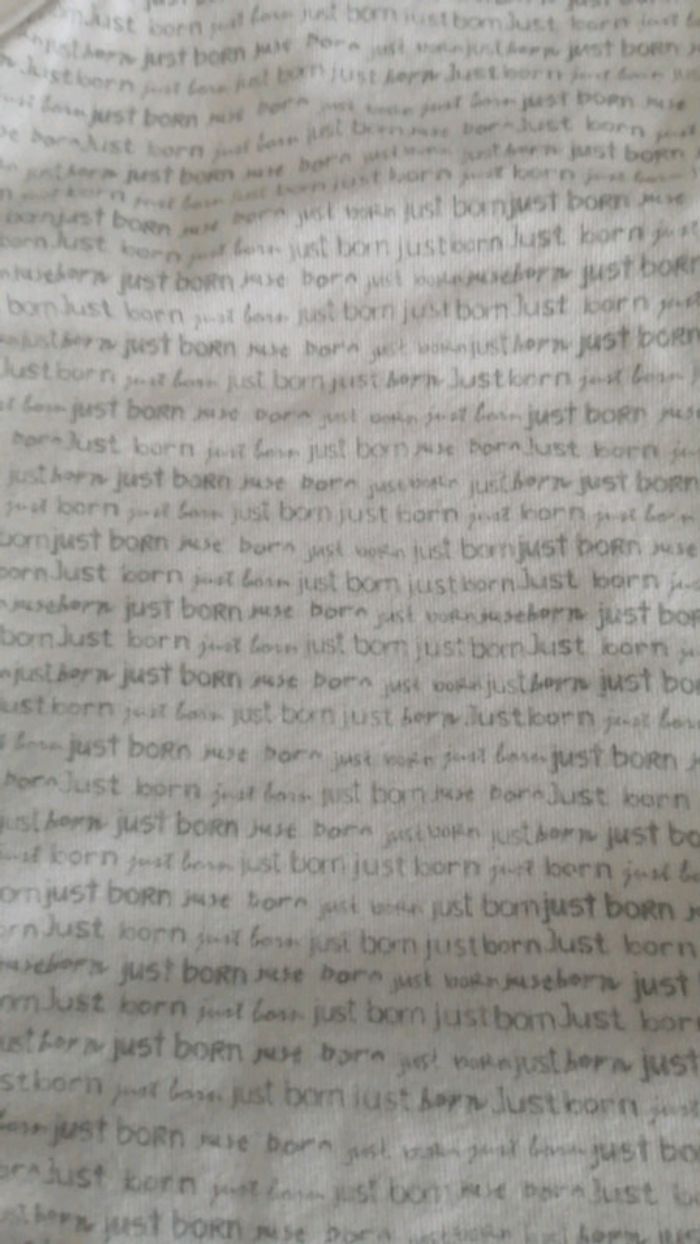 Just born just born just born justbornJust born just
just born just born just born just born justborn just born
Justborn just born just born just born Justborn just born
born just born just born just born just born just born
born Just born just born just born just born Just born just
justborn just born just born just born justborn just born
born just born just born just born just born just born
bornjust born just born just born just bornjust born just
born Just born just born just born justborn Just born just
justborn just born just born just born justborn just born
bornJust born just born just born justbornJust born just
justborn just born just born just born justborn just born
Justborn just born just born just born Justborn just born
born just born just born just born just born just born just
born Just born just born just born just born Just born just
justborn just born just born just born justborn just born
just born just born just born just born just born just born
bornjust born just born just born just bornjust born just
born Just born just born just born justborn Just born just
justborn just born just born just born justborn just bor
bornJust born just born just born justbornJust born just
justborn just born just born just born justborn just bo
ustborn just born just born just born Justborn just born
born just born just born just born just born just born
born Just born just born just born just born Just born
justborn just born just born just born justborn just bo
just born just born just born just born just born just bo
ornjust born just born just born just bornjust born
ornJust born just born just born justbornJust born
justborn just born just born just born justborn just
ornJust born just born just born justbornJust bor
ustborn just born just born just born justborn just
stborn just born just born just born Justborn just
born just born just born just born just born just bo
ornJust born just born just born just born Just
born just born just born just born just